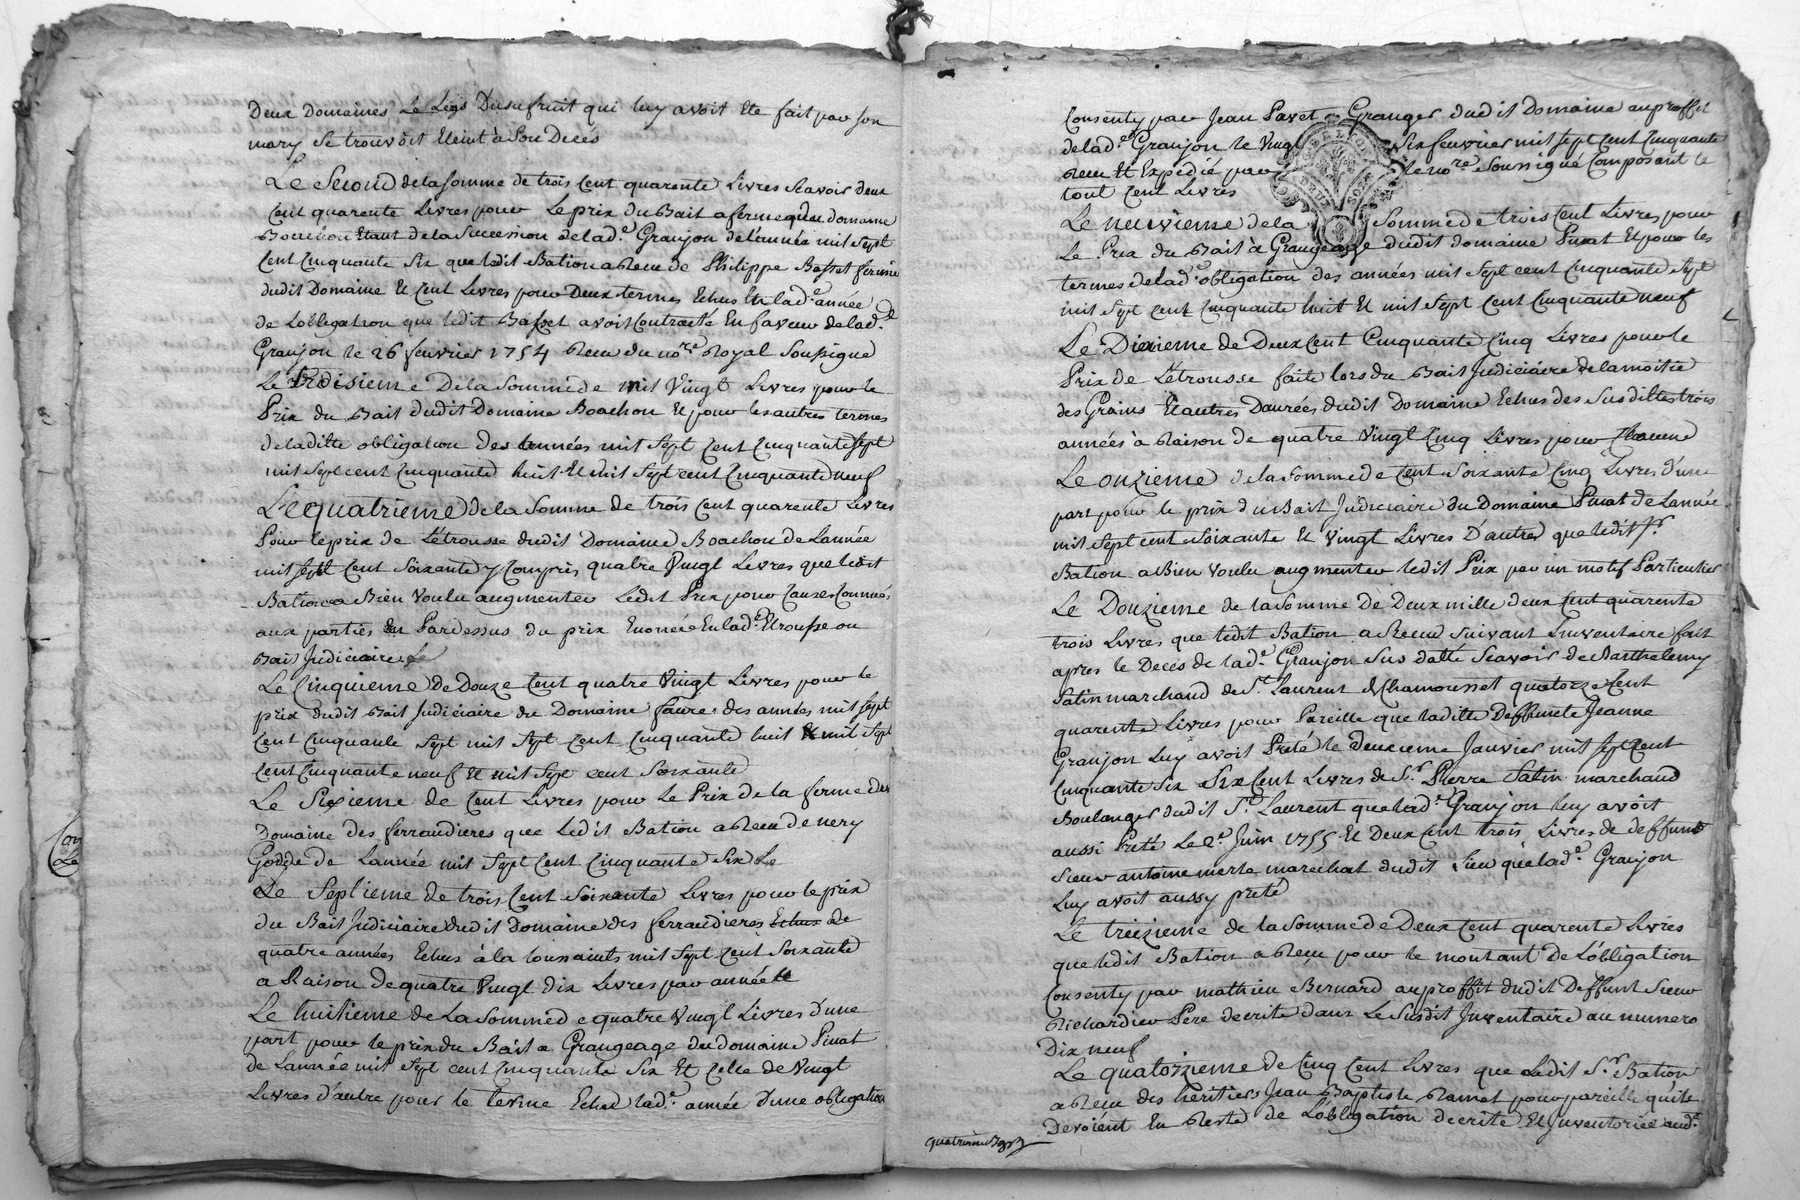 Deux Domaines Le Legs Dusufruit qui luy avoit Ete fait par son
mary Se trouvoit Eteint à Son Decés
Le Second dela somme de trois Cent quarente Livres Scavoir deux
Cent quarente Livres pour Le prix du Bail a ferme du domaine
Boachon Etant de la Succession de lad.e Granjon de l'année mil Sept
Cent Cinquante Six que ledit Bation a Reçu de Philippe Basset fermier
dudit Domaine Et Cent Livres pour Deux termes Echus En lad.e année
de Lobligation que ledit Basset avoit Contracté En faveur de lad.e
Granjon le 26 fevrier 1754 Recu du no.re Royal Soussigné
Le Troisieme De la Somme de mil Vingt Livres pour le
Prix du Bail dudit Domaine Boachon Et pour les autres termes
de laditte obligation des Années mil Sept Cent Cinquante Sept
mil Sept cent Cinquante huit Et mil Sept cent Cinquante neuf
Le quatrieme de la Somme de trois Cent quarente Livres
Pour le prix de Létrousse dudit Domaine Boachon de Lannée
mil Sept Cent Soixante y Compris quatre Vingt Livres que ledit
Bation a Bien Voulu augmenter Ledit Prix pour Causes Connues
aux parties En Pardessus du prix Enoncé En lad.e Etrousse ou
Bail Judiciaire
Le Cinquieme de Douze Cent quatre Vingt Livres pour le
prix dudit Bail Judiciaire du Domaine Faure des années mil Sept
Cent Cinquante Sept mil Sept Cent Cinquante huit Et mil Sept
Cent Cinquante neuf Et mil Sept cent Soixante
Le Sixieme de Cent Livres pour Le Prix de la ferme du
Domaine des ferraudieres que Ledit Bation a Reçu de nery
Godde de Lannée mil Sept Cent Cinquante Six
Le Septieme de trois Cent Soixante Livres pour le prix
du Bail Judiciaire dudit Domaine des ferraudieres Echus de
quatre années Echus à la toussaints mil Sept Cent Soixante
a Raison de quatre Vingt dix Livres par année
Le huitieme de La Somme de quatre Vingt Livres d'une
part pour le prix du Bail a Grangeage du domaine Pinat
de Lannée mil Sept cent Cinquante Six Et Celle de Vingt
Livres d'autre pour le terme Echu lad.e année d'une obligation
Con
Le
Consenty par Jean Pavet Granger dudit Domaine au proffit
de lad.e Granjon le Vingt Six fevrier mil Sept Cent Cinquante
Recu Et Expedié par le no.re Soussigné Composant le
tout Cent Livres
Le neuvieme de la Somme de trois Cent Livres pour
Le Prix du Bail à Grangeage dudit domaine Pinat Et pour les
termes de lad.e obligation des années mil Sept cent Cinquante Sept
mil Sept Cent Cinquante huit Et mil Sept Cent Cinquante neuf
Le Dixieme de Deux Cent Cinquante Cinq Livres pour le
Prix de Létrousse faite lors du Bail Judiciaire de la moitié
des Grains Et autres Danrées dudit Domaine Echus des Susdittes trois
années à Raison de quatre Vingt Cinq Livres pour Chacune
Le onzieme de la Somme de Cent Soixante Cinq Livres d'une
part pour le prix du Bail Judiciaire du Domaine Pinat de Lannée
mil Sept cent Soixante Et Vingt Livres D'autres que ledit Sr.
Bation a Bien Voulu augmenter ledit Prix par un motif Particulier
Le Douzieme de la Somme de Deux mille deux Cent quarente
trois Livres que ledit Bation a Recu suivant Linventaire fait
apres le Decés de lad.e Granjon Sus datté Scavoir de Barthelemy
Satin marchand de St Laurent de Chamousset quatorze Cent
quarente Livres pour Pareille que laditte Deffunte Jeanne
Granjon Luy avoit Preté le deuxieme Janvier mil Sept Cent
Cinquante Six Six Cent Livres de Sr. Pierre Satin marchand
Boulanger dudit St. Laurent que lad.e Granjon luy avoit
aussi Preté Le 2e. Juin 1755 Et Deux Cent trois Livres de deffunt
Sieur antoine merle marechal dudit Lieu que lad.e Granjon
Luy avoit aussy preté
Le treizieme de la Somme de Deux Cent quarente Livres
que ledit Bation a Reçu pour le montant De Lobligation
Consenty par mathieu Bernard au proffit dudit Deffunt Sieur
Richardier Pere decrite dans Le Susdit Inventaire au numero
Dix neuf
Le quatorzieme de Cinq Cent Livres que Ledit Sr. Bation
a Reçu des heritiers Jean Baptiste Ramet pour pareille qu'ils
Devoient En Reste de Lobligation decrite Et Inventoriée aud.t